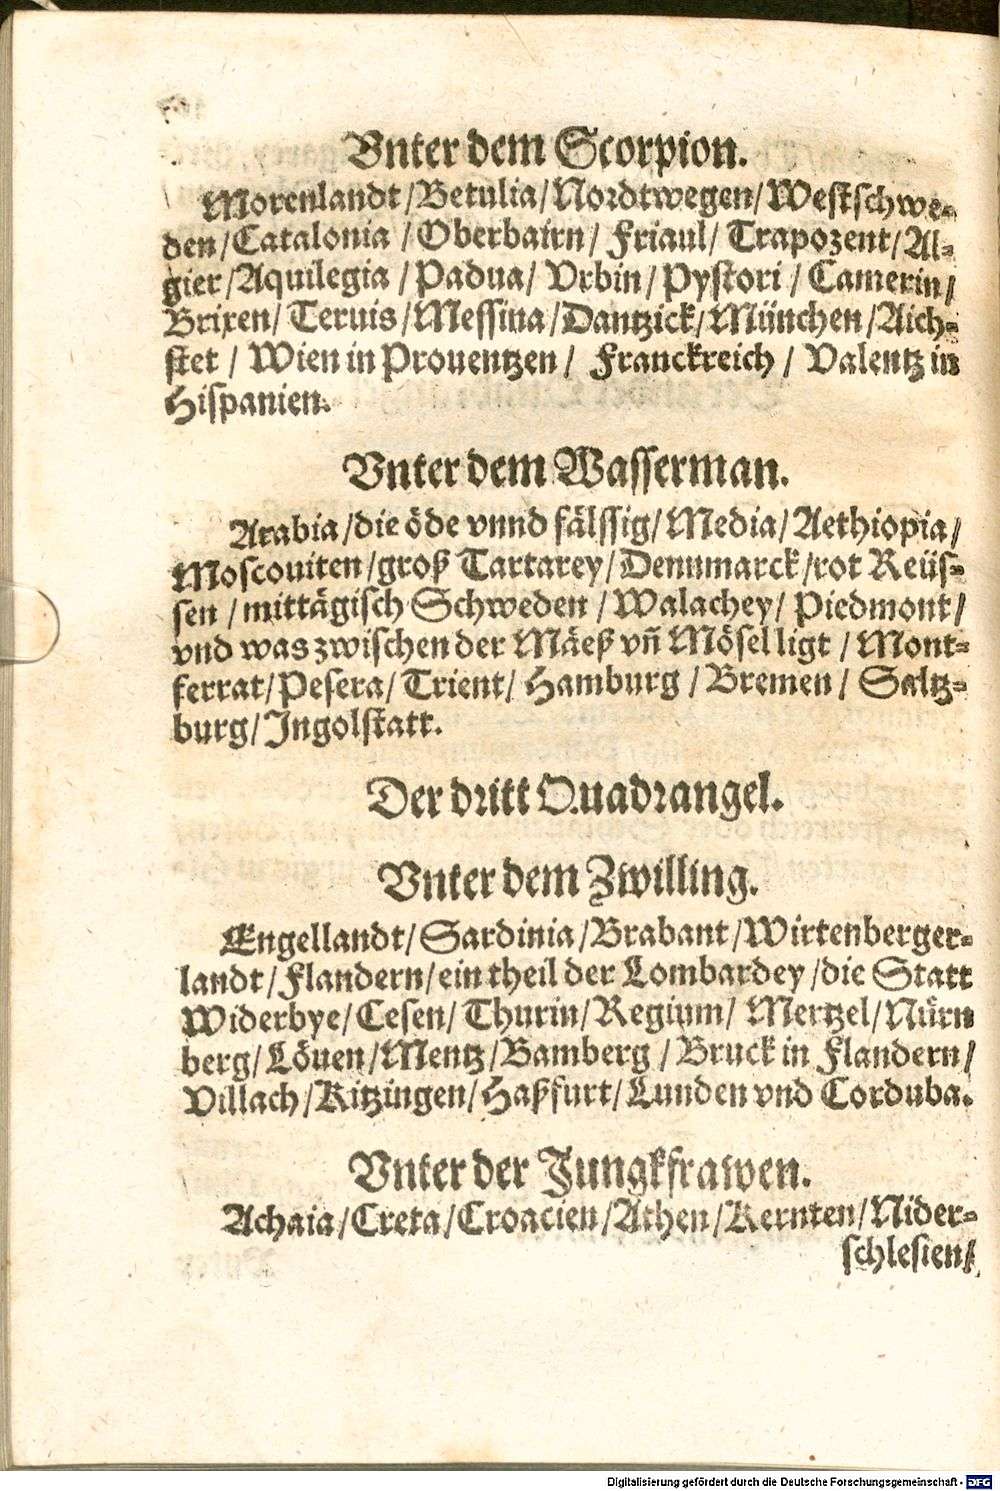 Vnter dem Scorpion.
Morenlandt/Betulia/Nordtwegen/Westschwe-
den/Catalonia/Oberbairn/Friaul/Trapozent/Al-
gier/Aquilegia/Padua/Vrbin/Pystori/Camerin/
Brixen/Teruis/Messina/Dantzick/München/Aich-
stet/Wien in Prouentzen/Franckreich/Valentz in
Hispanien.
Vnter dem Wasserman.
Arabia/die öde vnnd fälssig/Media/Aethiopia/
Moscouiten/groß Tartarey/Dennmarck/rot Reüs-
sen/mittägisch Schweden/Walachey/Piedmont/
vnd was zwischen der Mäeß vñ Mösel ligt/Mont-
ferrat/Pesera/Trient/Hamburg/Bremen/Saltz-
burg/Ingolstatt.
Der dritt Quadrangel.
Vnter dem Zwilling.
Engellandt/Sardinia/Brabant/Wirtenberger-
landt/Flandern/ein theil der Lombardey/die Statt
Widerbye/Cesen/Thurin/Regium/Mertzel/Nürn
berg/Löuen/Mentz/Bamberg/Bruck in Flandern/
Villach/Kitzingen/Haßfurt/Lunden vnd Corduba.
Vnter der Jungkfrawen.
Achaia/Creta/Croacien/Athen/Kernten/Nider-
schlesien/
Digitalisierung gefördert durch die Deutsche Forschungsgemeinschaft - DFG